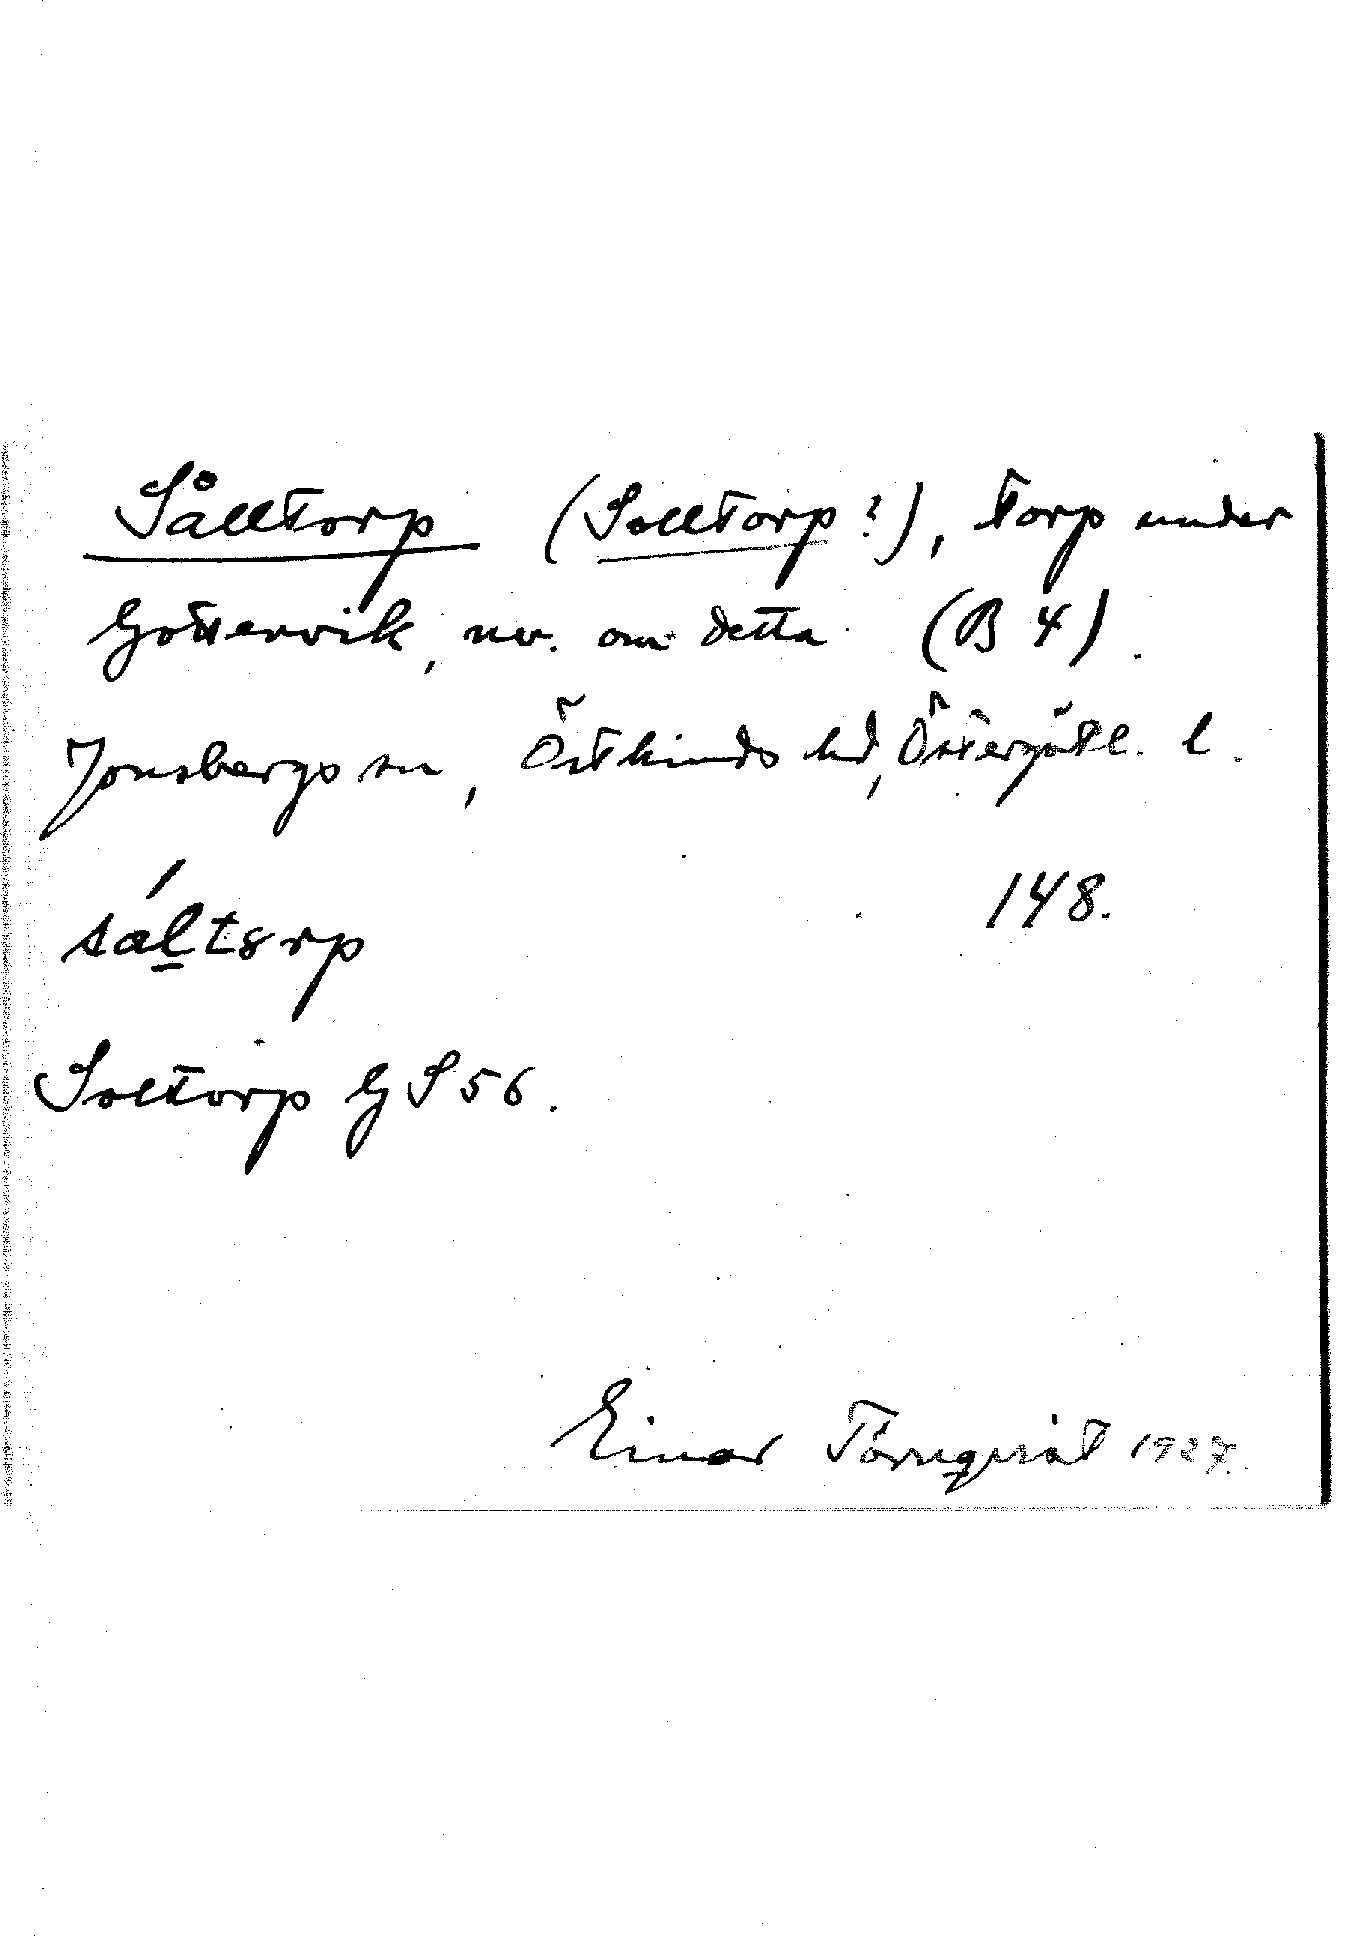 Sålltorp (Solltorp?), torp under
Gottervik, nv. om detta (B 4).
Jonsbergs sn, Östkinds hd, Östergötl. l.
148.
sáltorp
Soltorp GS 56.
Einar Törnqvist 1927.